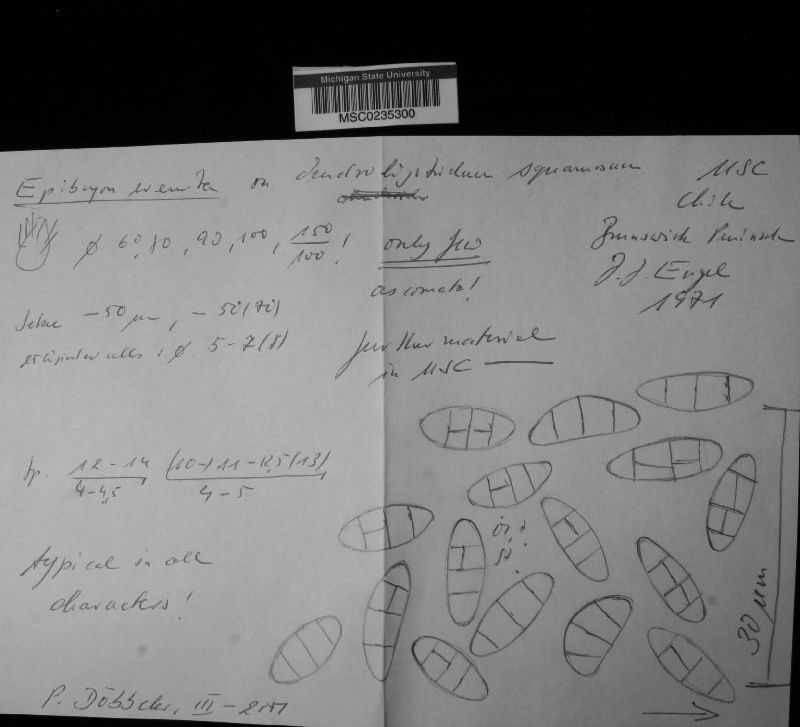 Michigan State University
MSC0235300
Epibryon eremita on Dendroligotrichum squamosum MSC
Chile
Brunswick Peninsula
J.J. Engel
1971
ø 60, 80, 90, 100, 150/100! only few
ascomata!
Setae -50 µm, -50(70)
ø 5-7(8)
further material
in MSC
Sp. 12-14/4-4,5 (10-)11-12,5(13)/4-5
atypical in all
characters!
30 µm
P. Döbbeler, III-2011